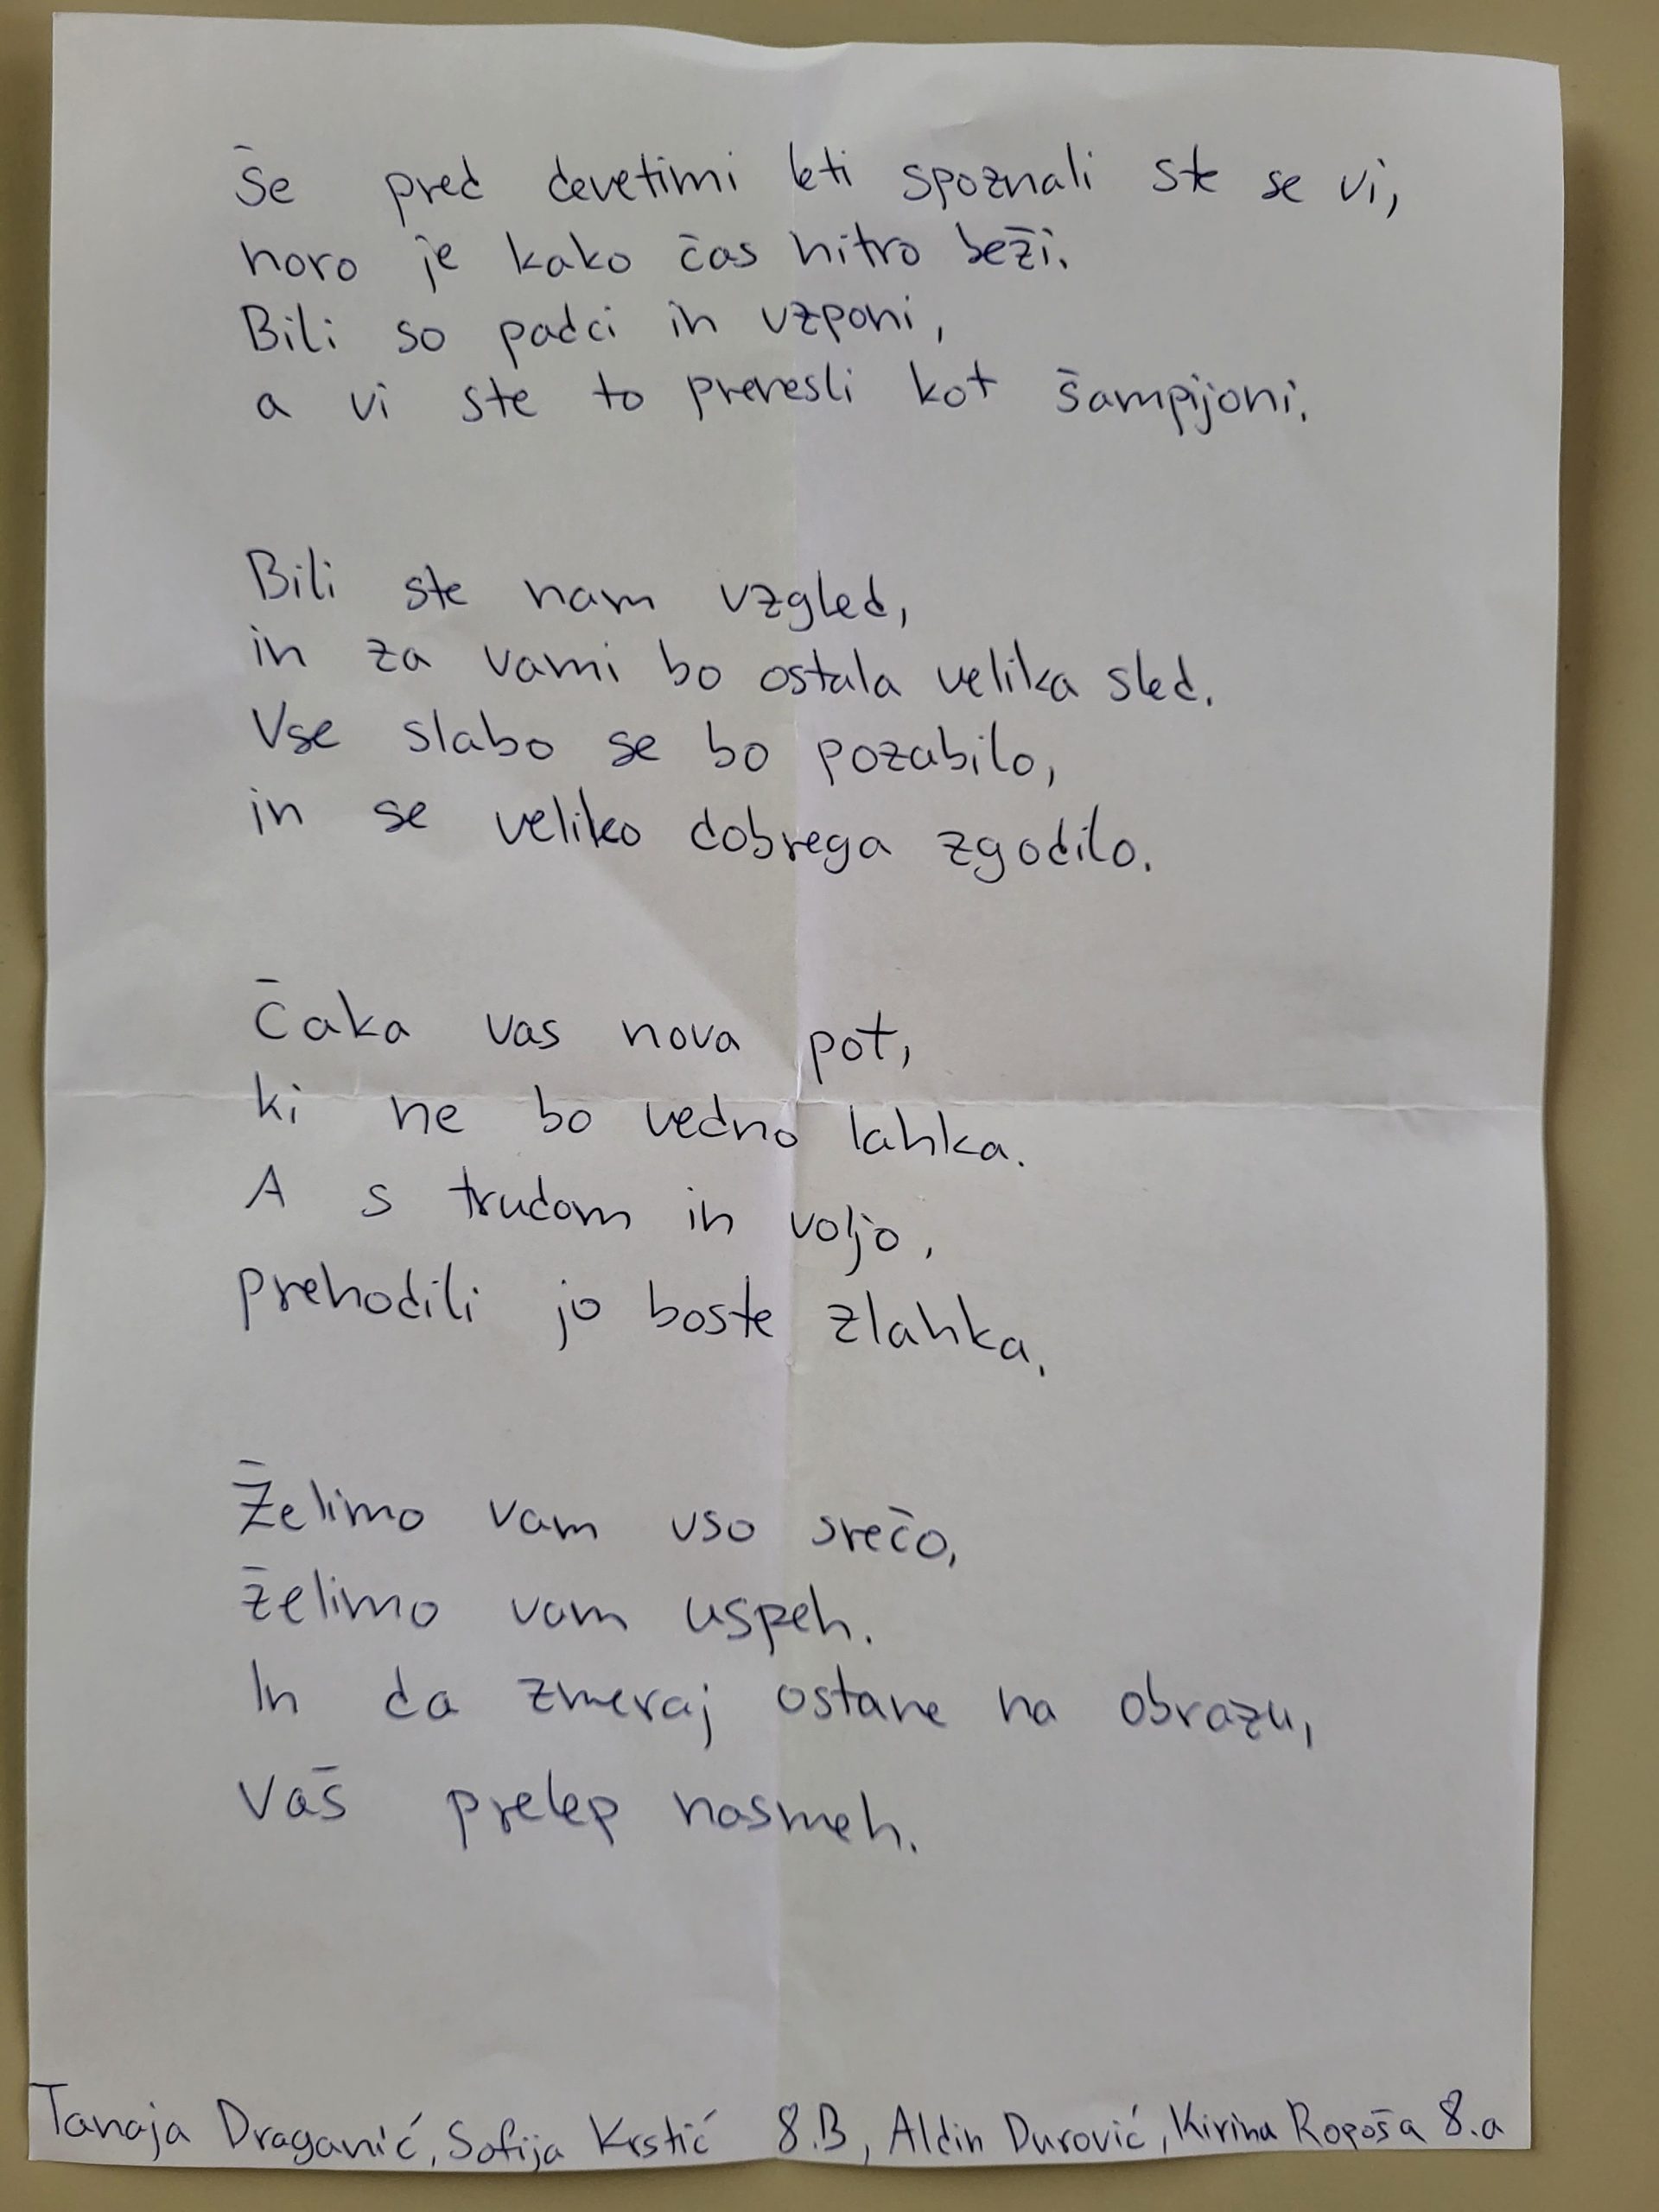 Še pred devetimi leti spoznali ste se vi,
noro je kako čas hitro beži.
Bili so padci in vzponi,
a vi ste to prenesli kot šampijoni.
Bili ste nam vzgled,
in za vami bo ostala velika sled.
Vse slabo se bo pozabilo,
in se veliko dobrega zgodilo.
Čaka vas nova pot,
ki ne bo vedno lahka.
A s trudom in voljo,
prehodili jo boste zlahka.
Želimo vam vso srečo,
želimo vam uspeh.
In da zmeraj ostane na obrazu,
vaš prelep nasmeh.
Tanaja Draganić, Sofija Krstić 8.B, Aldin Durović, Kirina Ropoša 8.a